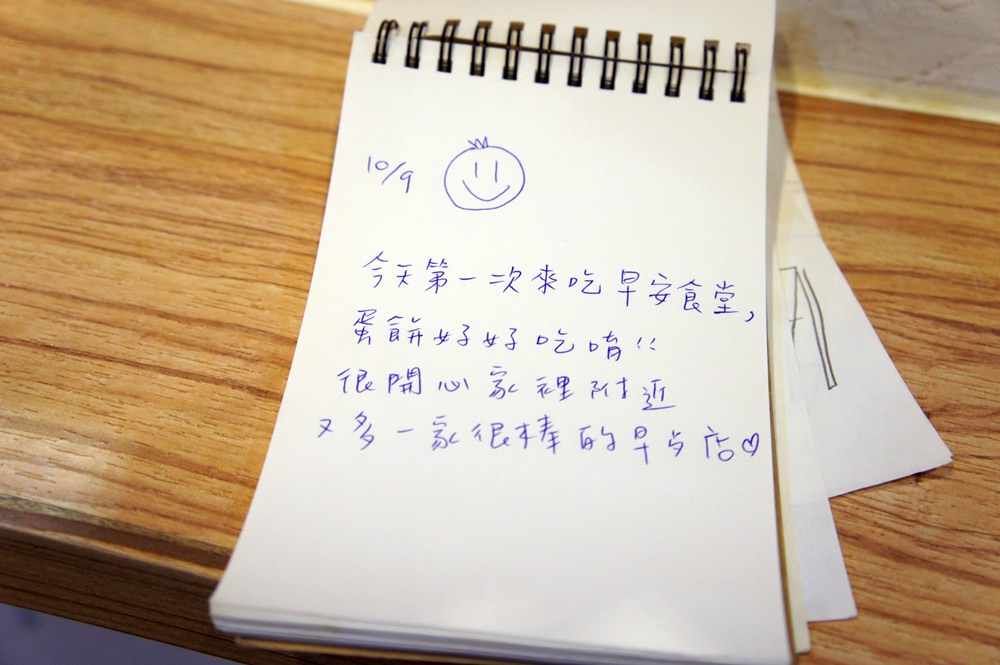 10/9
今天第一次來吃早安食堂,
蛋餅好好吃唷!!
很開心家裡附近
又多一家很棒的早点店♡